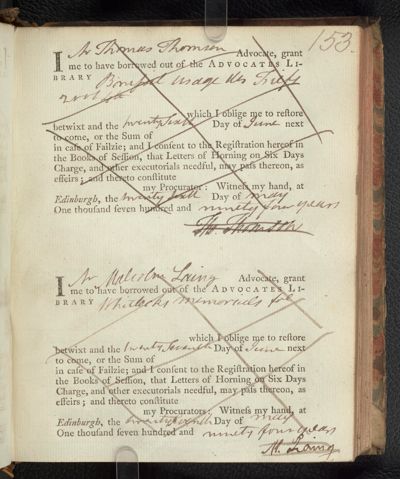 153.
I Mr Thomas Thomson Advocate, grant
me to have borrowed out of the ADVOCATES LI-
BRARY Bonifont Usage des Fiefs
2 vols
which I oblige me to reſtore
betwixt and the twenty sixth Day of June next
to come, or the Sum of
in caſe of Failzie; and I conſent to the Regiſtration hereof in
the Books of Seſſion, that Letters of Horning on Six Days
Charge, and other executorials needful, may paſs thereon, as
effeirs; and thereto conſtitute
my Procurator: Witneſs my hand, at
Edinburgh, the twenty sixth Day of May
One thouſand ſeven hundred and ninety four years
Th. Thomson
I Mr Malcolm Laing Advocate, grant
me to have borrowed out of the ADVOCATES LI-
BRARY Whitlocks memorials fol
which I oblige me to reſtore
betwixt and the twenty seventh Day of June next
to come, or the Sum of
in caſe of Failzie; and I conſent to the Regiſtration hereof in
the Books of Seſſion, that Letters of Horning on Six Days
Charge, and other executorials needful, may paſs thereon, as
effeirs; and thereto conſtitute
my Procurators: Witneſs my hand, at
Edinburgh, the twenty seventh Day of May
One thouſand ſeven hundred and ninety four years
M. Laing